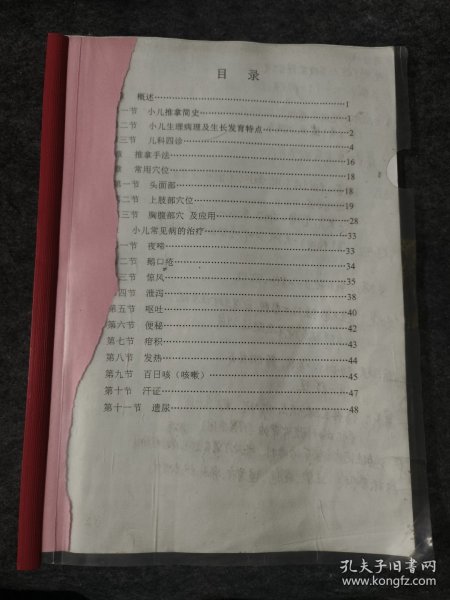 目 录
章 概述……1
一节 小儿推拿简史……1
二节 小儿生理病理及生长发育特点……2
三节 儿科四诊……4
章 推拿手法……16
章 常用穴位……18
第一节 头面部……18
第二节 上肢部穴位……19
第三节 胸腹部穴 及应用……28
小儿常见病的治疗……33
第一节 夜啼……33
二节 鹅口疮……34
三节 惊风……35
四节 泄泻……38
第五节 呕吐……40
第六节 便秘……42
第七节 疳积……43
第八节 发热……44
第九节 百日咳（咳嗽）……45
第十节 汗证……47
第十一节 遗尿……48
孔夫子旧书网
www.kongfz.com